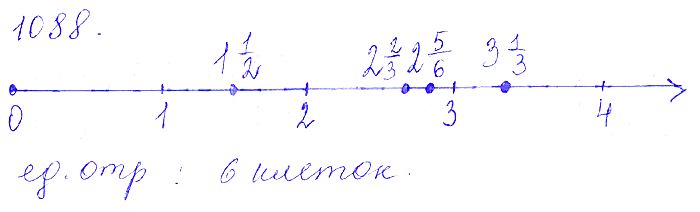 1088.
1 1/2 2 2/3 2 5/6 3 1/3
0 1 2 3 4
ед. отр : 6 клеток.